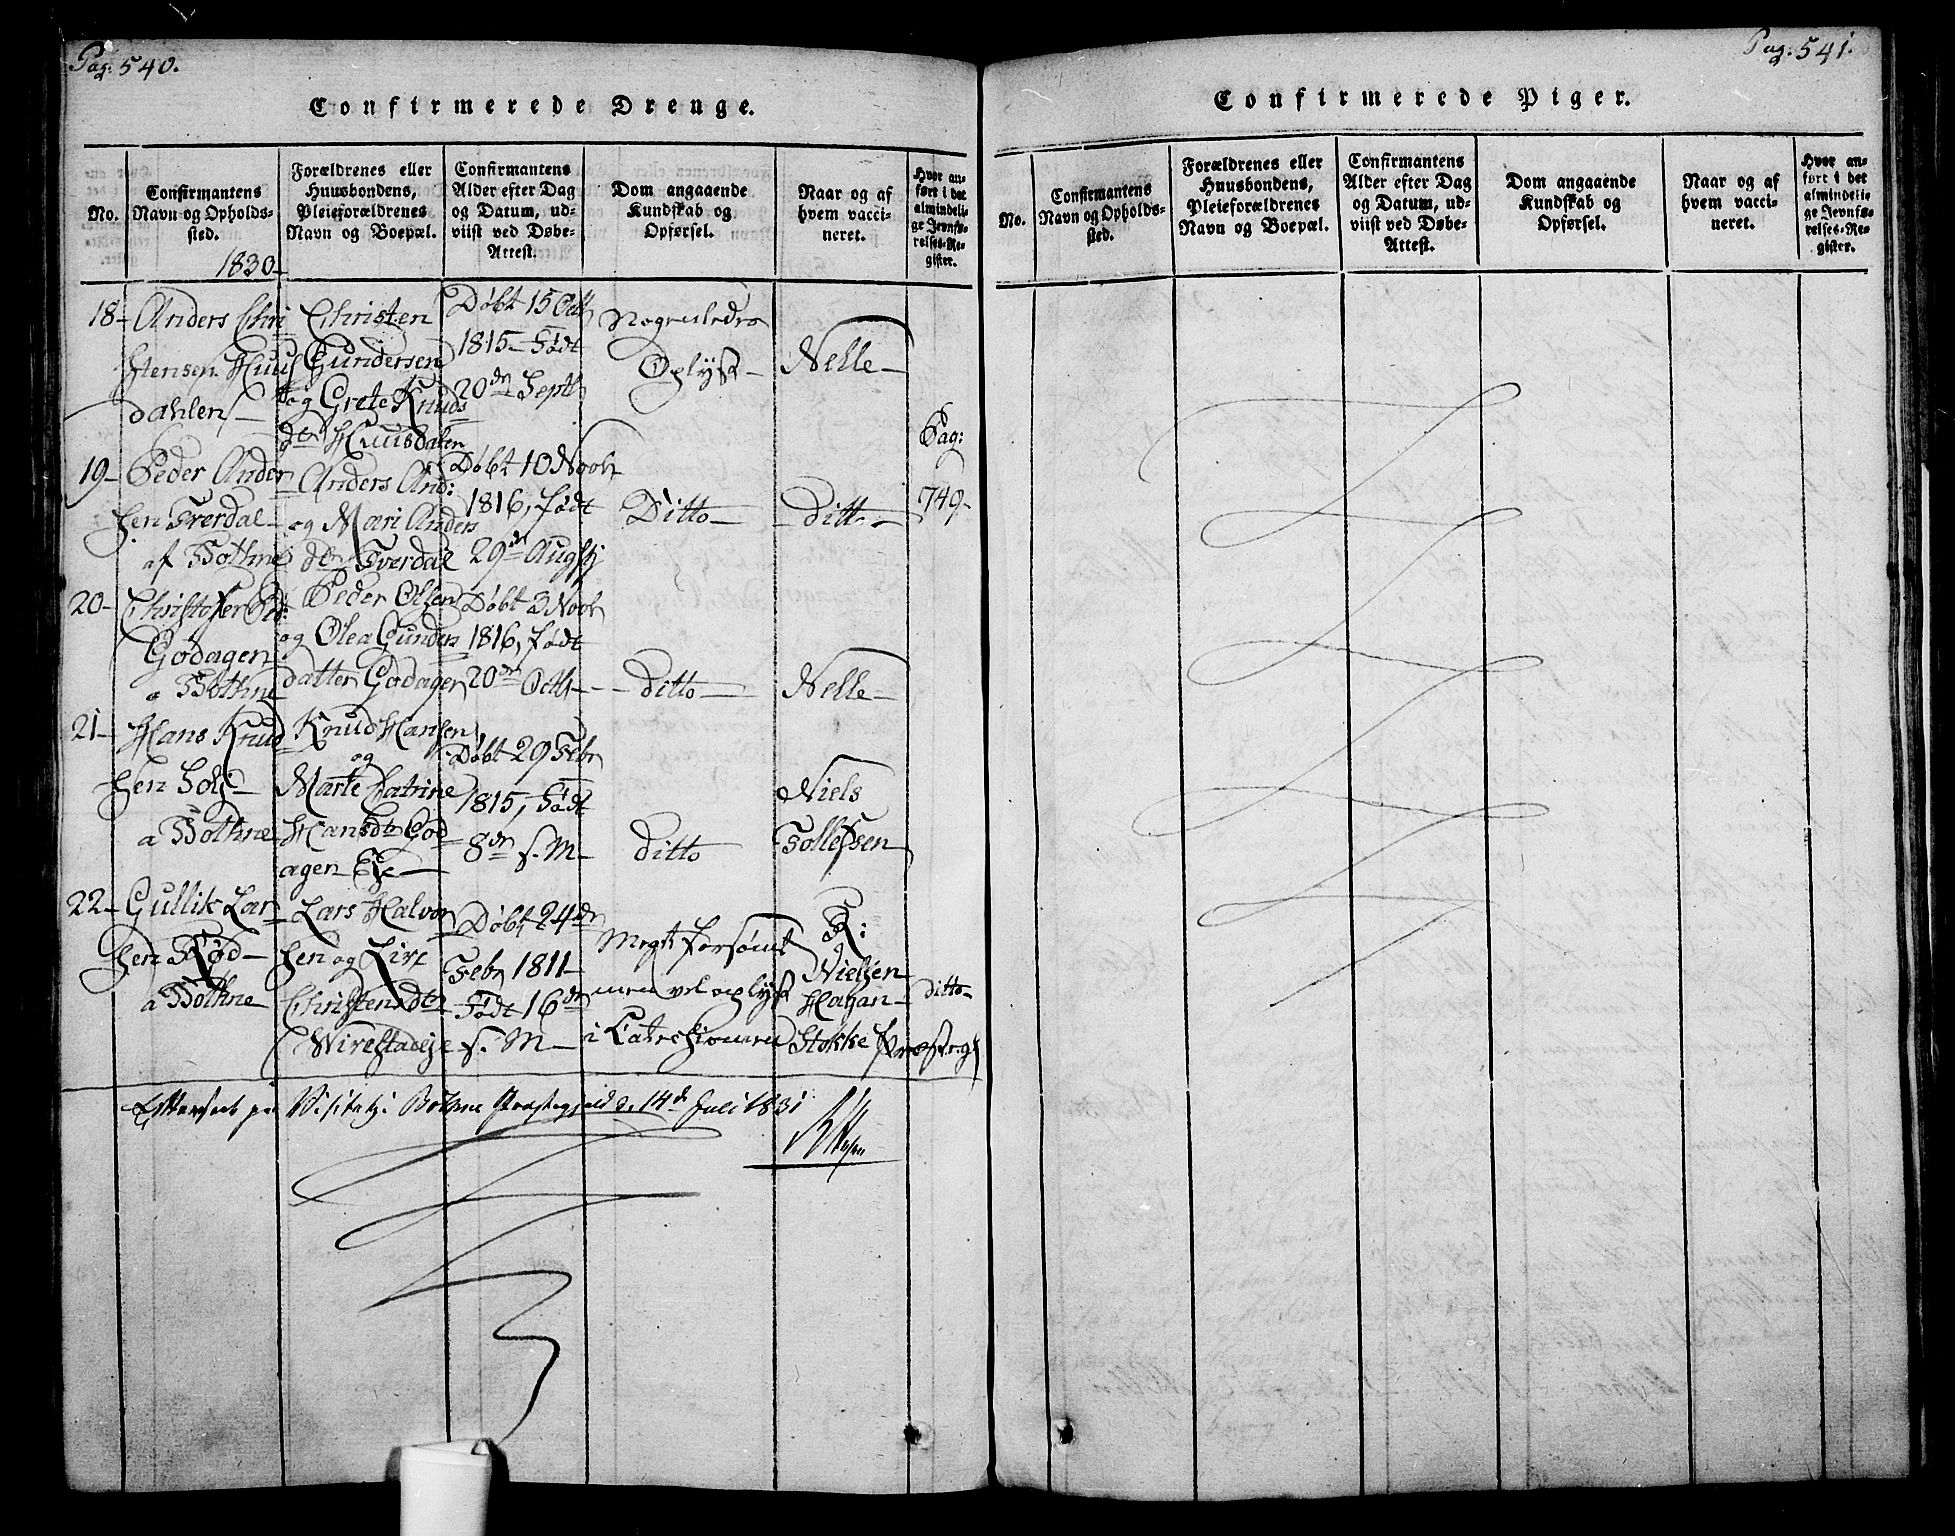 Pag: 540.
Confirmerede Drenge.
No.
Confirmantens
Navn og Opholds-
sted.
1830
Forældrenes eller
Huusbondens,
Pleieforældrenes
Navn og Boepæl.
Confirmantens
Alder efter Dag
og Datum, ud-
viist ved Døbe-
Attest.
Dom angaaende
Kundskab og
Opførsel.
Naar og af
hvem vacci-
neret.
Hvor an-
ført i det
almindeli-
ge Jevnfø-
relses-Re-
gister.
18- Anders Chri
stensen Huus
dahlen
Christen
Gundersen
og Grete Knuds
dtr Huusdalen
Døbt 15 Octb
1815- Født
20de Septb
Nogenledes
Oplyst-
Nelle-
19- Peder Ander
sen Tverdal-
af Bothne
Anders And:
og Mari Anders
dtr Tverdal
Døbt 10 Novbr
1816, født
29de Augstj
Ditto-
ditto-
Pag:
749-
20- Christofer Ped:
Godagen
a Bothne
Peder Olsen
og Olea Gunders
datter Godagen
Døbt 3 Novbr
1816, født
20de Octb-
ditto-
Nelle-
21- Hans Knud
sen
a Bothne
Knud Hansen
og
Marte Catrine
Hansdtr God
agen Eje-
Døbt 29 Febr
1815, Født
8de s. M-
ditto
Niels
Tollefsen
22- Gullik Lar
sen Rød-
a Bothne
Lars Halvor
sen og
Christensdtr
Døbt 24de
Febr 1811-
Født 16de
s. M-
Meget forsømt
men vel oplyst
i
R:
Nielsen
Hagan-
Stokke Præstegj
ditto-
Efterseet paa Visitats i Bothne Præstegjeld d. 14d Juli 1831
Pag: 541.
Confirmerede Piger.
No.
Confirmantens
Navn og Opholds-
sted.
Forældrenes eller
Huusbondens,
Pleieforældrenes
Navn og Boepæl.
Confirmantens
Alder efter Dag
og Datum, ud-
viist ved Døbe-
Attest.
Dom angaaende
Kundskab og
Opførsel.
Naar og af
hvem vacci-
neret.
Hvor an-
ført i det
almindeli-
ge Jevnfø-
relses-Re-
gister.